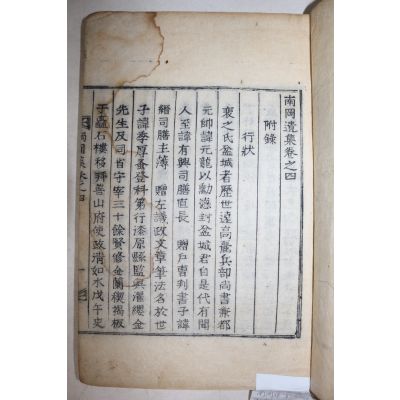 南岡遺集卷之四
附錄
行狀
裵之氏盆城者歷世遠高麗兵部尚書兼都
元帥諱元龍以勳懋封盆城君自是代有聞
人至諱有興司膳直長 贈戶曹判書子諱
縉司膳主簿 贈左議政文章筆法名於世
子諱季厚蚤登科第行漆原縣監與濯纓金
先生及司省守宰三十餘賢修金蘭稧揭板
于矗石樓移拜善山府使政淸如水戊午史
南岡集卷之四
一